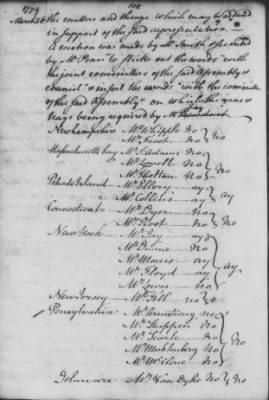 1779
March 26 the matters and things which may be adduced
in support of the said representation —
A motion was made by Mr Smith seconded
by Mr Penn to strike out the words "with
the joint committee of the said Assembly &
council" & insert the words "with the committee
of the said Assembly" on which the yeas &
nays being required by Mr
New hampshire Mr Whipple no } no
Mr Frost no
Massachusetts bay Mr S adams no } no
Mr Lovell no
Mr Holten no
Rhode Island Mr Ellery ay } ay
Mr Collins ay
Connecticut Mr Dyer no } no
Mr Root no
New York Mr Jay ay } ay
Mr Duane no
Mr Morris ay
Mr Floyd ay
Mr Lewis no
New Jersey Mr Fell no } no
Pensylvania Mr Armstrong no } no
Mr Shippen no
Mr Searle no
Mr Muhlenberg no
Mr McClene no
Delaware Mr Van Dyke no } no